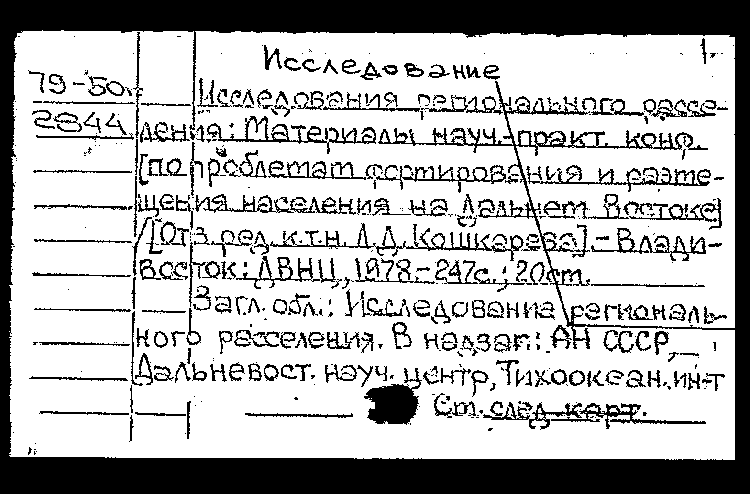 1.
Исследование
79-50
Исследования регионального рассе-
2844 ления: Материалы науч.-практ. конф.
[по проблемам формирования и разме-
щения населения на Дальнем Востоке]
/[Отв. ред. к.т.н. Л.Д. Кошкарева].- Влади-
восток: ДВНЦ, 1978.- 247с.; 20см.
Загл. обл.: Исследования региональ-
ного расселения. В надзаг.: АН СССР,
Дальневост. науч. центр, Тихоокеан. ин-т
См. след. карт.